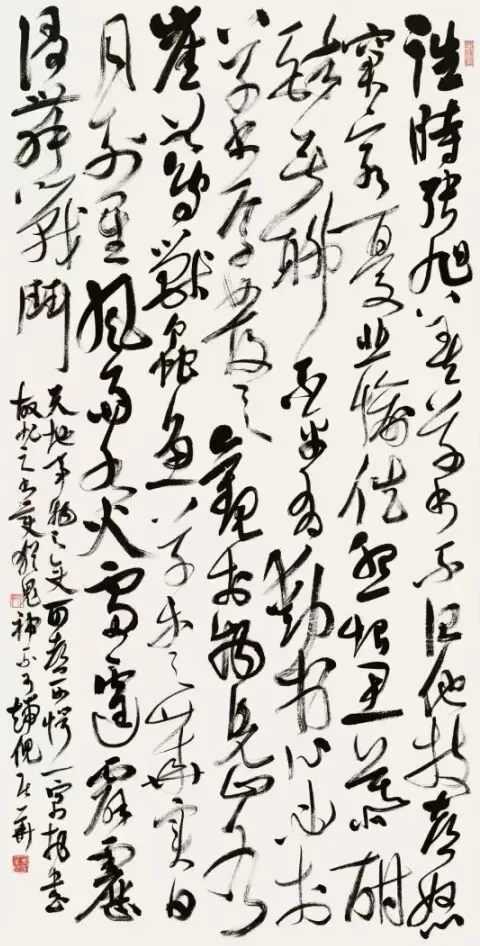 往時張旭善草書不治他技喜怒
窘窮憂悲愉佚怨恨思慕酣
醉無聊不平有動於心必於
草書焉發之觀於物見山水
崖谷鳥獸蟲魚草木之花實日
月列星風雨水火雷霆霹靂
歌舞戰鬥
天地事物之變可喜可愕一寓於書
故旭之書變猶鬼神不可端倪